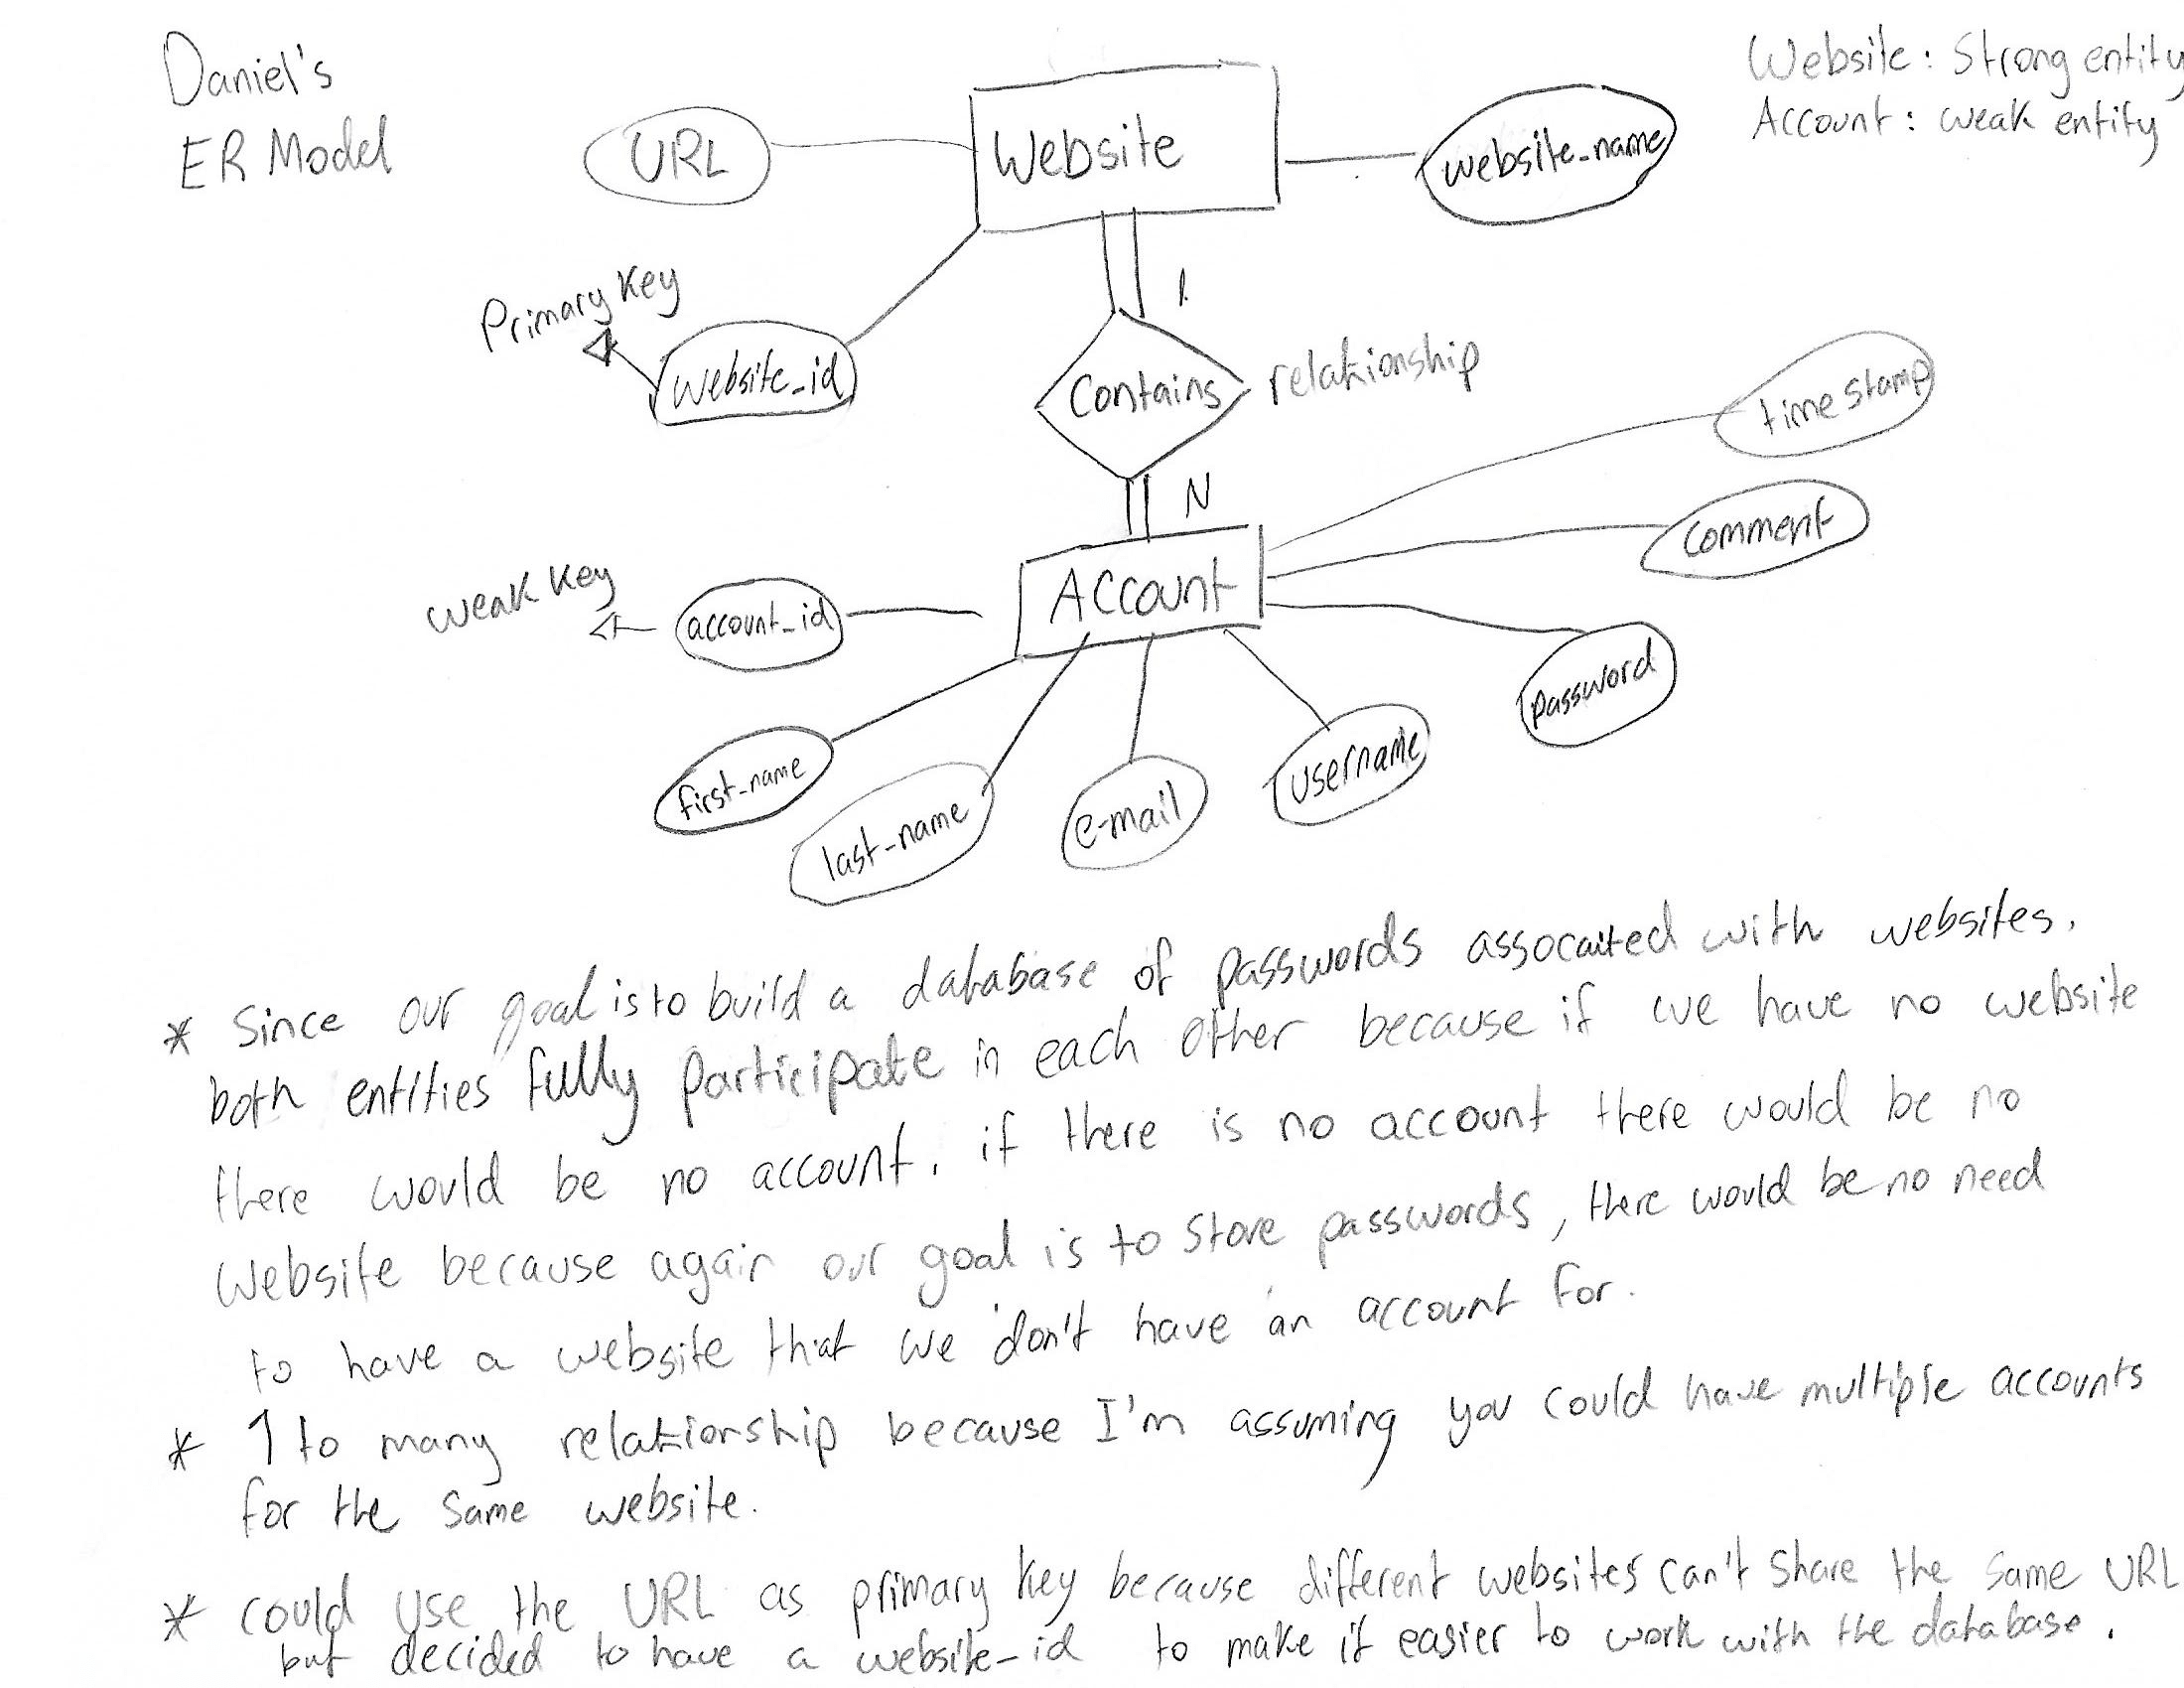 Daniel's
ER Model
Website: Strong entity
Account: weak entity
URL
Website
website_name
Primary Key
website_id
1
Contains
relationship
timestamp
N
comment
Account
weak key
account_id
password
first_name
last_name
e-mail
username
* Since our goal is to build a database of passwords assocaited with websites.
both entities fully participate in each other because if we have no website
there would be no account. if there is no account there would be no
website because again our goal is to store passwords, there would be no need
to have a website that we don't have an account for.
* 1 to many relationship because I'm assuming you could have multiple accounts
for the same website.
* could use the URL as primary key because different websites can't share the same URL
but decided to have a website_id to make it easier to work with the database.